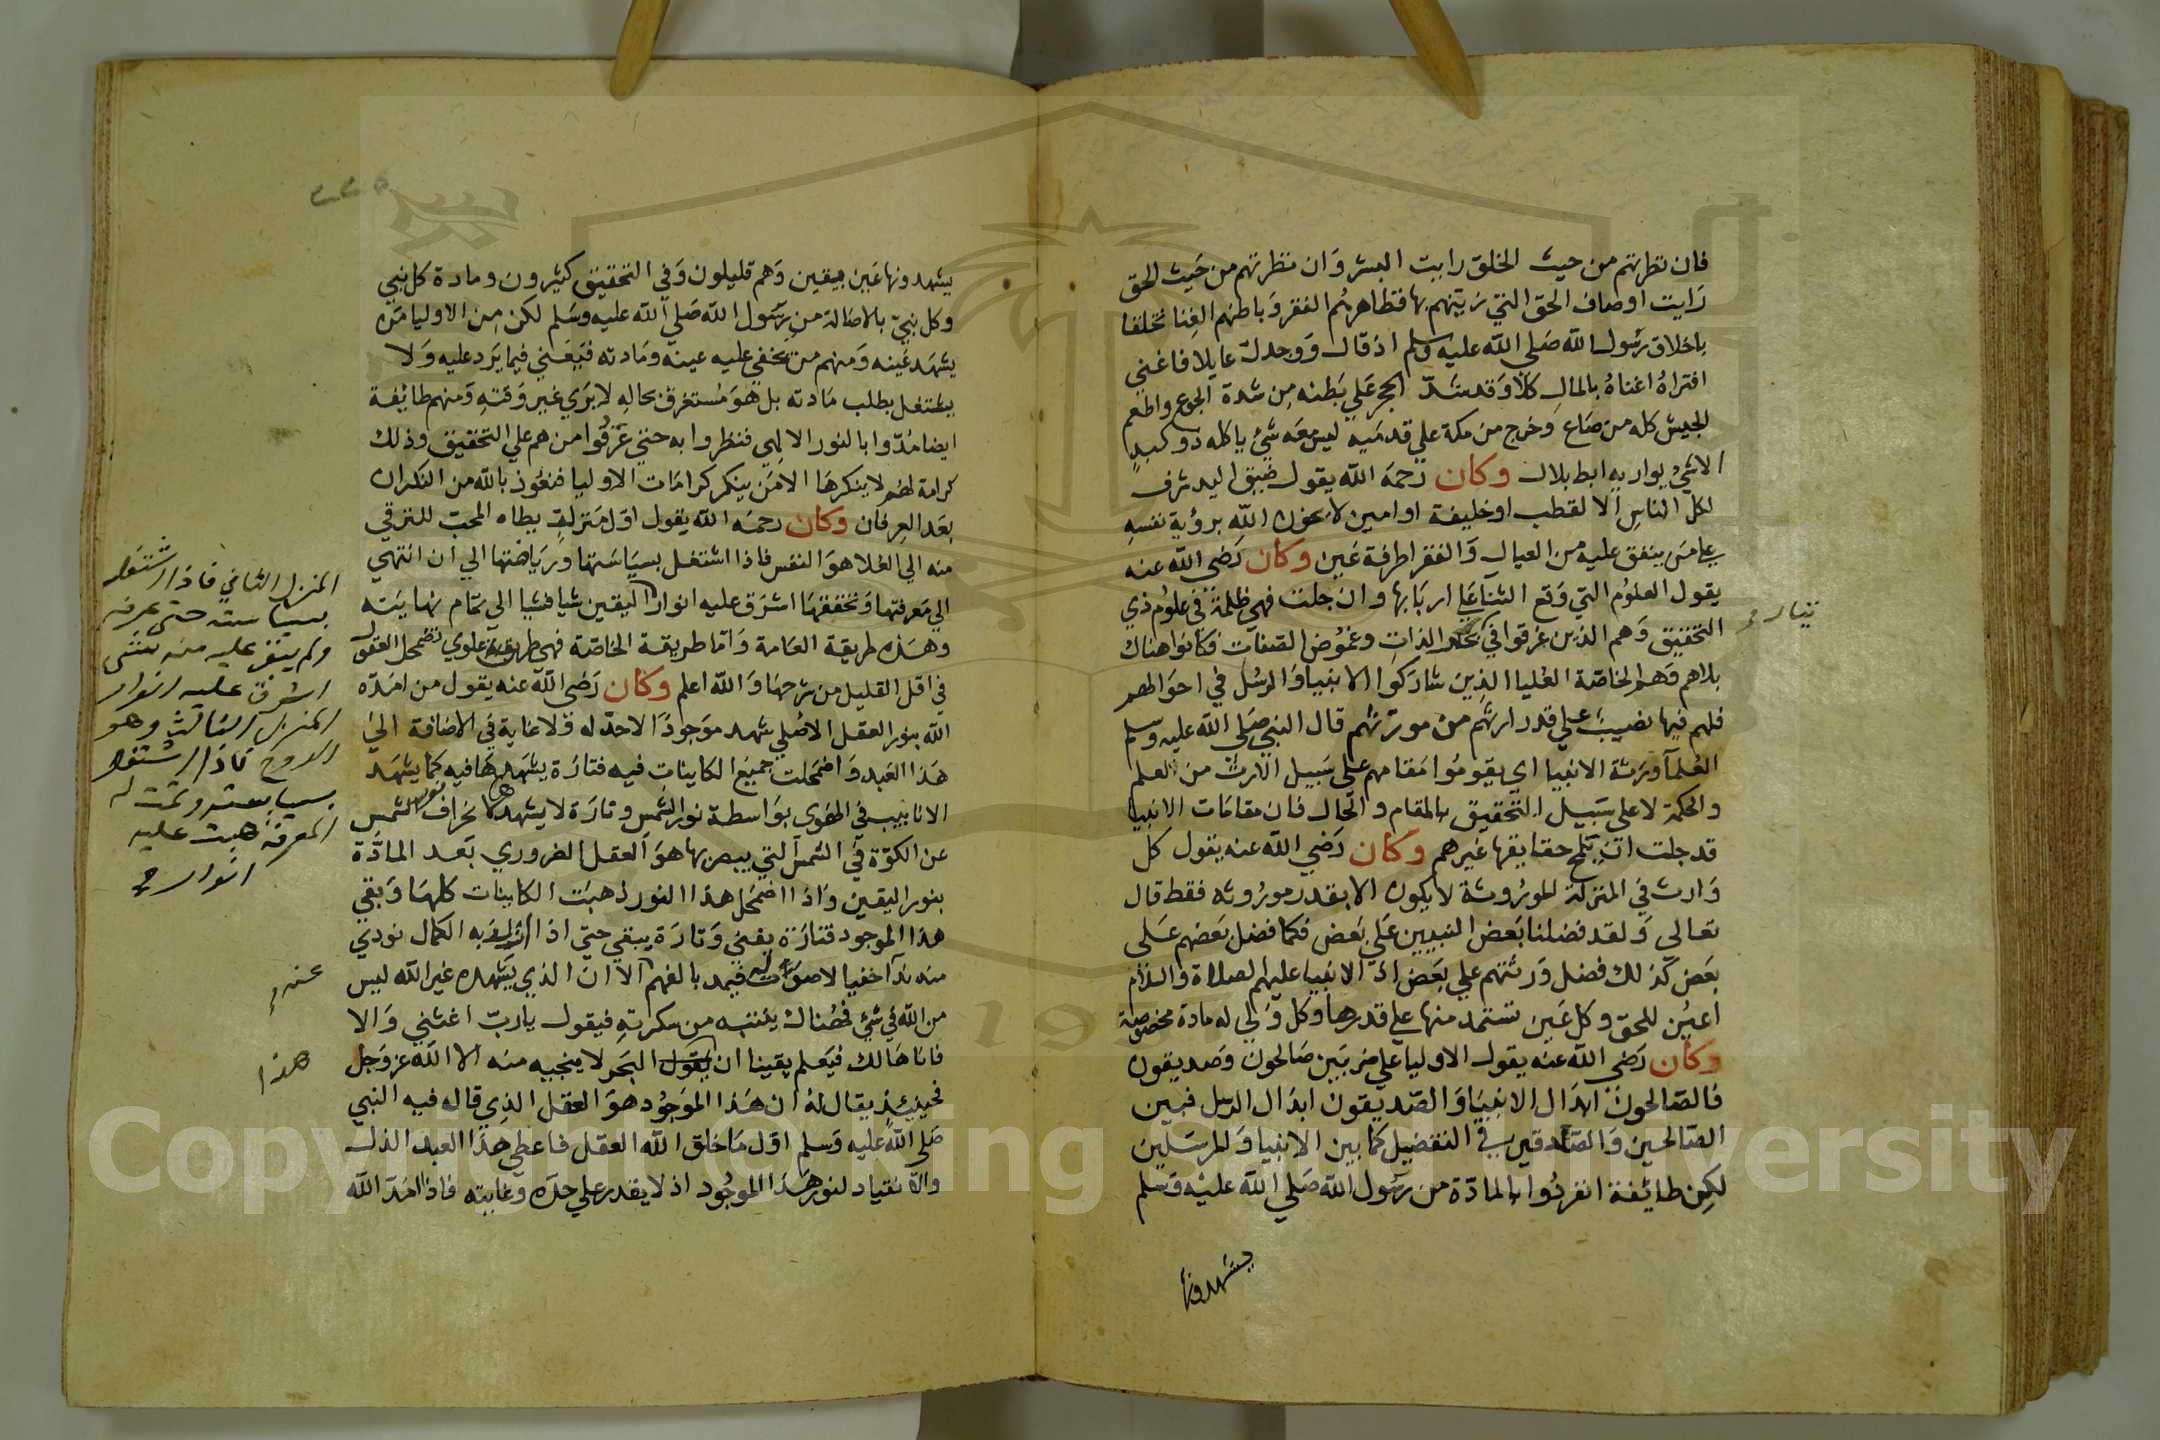 فان نظرتهم من حيث الخلق رايت البشر وان نظرتهم من حيث الحق
رايت اوصاف الحق التي زينهم بها فظاهرهم الفقر وباطنهم الغنا تخلقا
باخلاق رسول الله صلى الله عليه وسلم اذ قال ووجدك عايلا فاغني
افتراه اغناه بالمال كلا وقد شد الحجر علي بطنه من شدة الجوع واطعم
الجيش كله من صاع وخرج من مكة علي قدميه ليس معه شئ ياكله ذو كبد
الا شئ يواريه ابط بلال وكان رحمه الله يقول ضيق اليد شرف
لكل الناس الا لقطب او خليفة او امين لا يخون الله برؤية نفسه
علي من ينفق عليه من العيال والفقرا طرفة عين وكان رضي الله عنه
يقول العلوم التي وقع الثنا علي اربابها وان جلت فهي ظلمة في علوم ذي
التحقيق وهم الذين غرقوا في بحار الذات وغموض الصفات فكانوا هناك
بلا هم وهم الخاصة العليا الذين شاركوا الانبيا والرسل في احوالهم
فلهم فيها نصيب علي قدر ارثهم من مورثهم قال النبي صلي الله عليه وسلم
العلما ورثة الانبيا اي يقوموا مقامهم علي سبيل الارث من العلم
والحكمة لا علي سبيل التحقيق بالمقام والحال فان مقامات الانبيا
قد جلت ان يلمح حقايقها غيرهم وكان رضي الله عنه يقول كل
وارث في المنزلة الموروثة لا يكون الا بقدر موروثه فقط قال
تعالى ولقد فضلنا بعض النبيين علي بعض فكما فضل بعضهم على
بعض كذلك فضل ورثتهم علي بعض اذ الانبيا عليهم الصلاة والسلام
اعين للحق وكل عين تستمد منها علي قدرها وكل ولي له مادة مخصوصة
وكان رضي الله عنه يقول الاوليا علي ضربين صالحون وصديقون
فالصالحون ابدال الانبيا والصديقون ابدال الرسل فبين
الصالحين والصديقين في التفضيل كما بين الانبيا والمرسلين
لكن طائفة انفردوا بالمادة من رسول الله صلي الله عليه وسلم
يشهدونها
يشهدونها عين يقين وهم قليلون وفي التحقيق كثيرون ومادة كل نبي
وكل ولي بالاصالة من رسول الله صلي الله عليه وسلم لكن من الاوليا من
يشهد عينه ومنهم من تخفي عليه عينه ومادته فيفني فيما يرد عليه ولا
يشتغل بطلب مادته بل هو مستغرق بحاله لا يري غير وقته ومنهم طائفة
ايضا مدوا بالنور الالهي فنظروا به حتي عرفوا من هم علي التحقيق وذلك
كرامة لهم لا ينكرها الا من ينكر كرامات الاوليا فنعوذ بالله من النكران
بعد العرفان وكان رحمه الله يقول اول منزلة يطاه المحب للترقي
منه الي العلا هو النفس فاذا اشتغل بسياستها ورياضتها الي ان انتهي
الي معرفتها وتحققها اشرق عليه انوار اليقين شيا فشيا الي تمام نهايته
وهذه طريقة العامة واما طريقة الخاصة فهي طريقة علوي تضمحل العقول
في اقل القليل من شرحها والله اعلم وكان رضي الله عنه يقول من امده
الله بنور العقل الاصلي شهد موجودا لا حد له ولا غاية في الاضافة الي
هذا العبد واضمحلت جميع الكاينات فيه فتارة يشهدها فيه كما يشهد
الانابيب في الهوي بواسطة نور الشمس وتارة لا يشهدها لانحراف نور الشمس
عن الكوة في الشمس التي يبصر بها هو العقل الضروري بعد المادة
بنور اليقين واذا اضمحل هذا النور ذهبت الكاينات كلها وبقي
هذا الموجود فتارة يفني وتارة يبقي حتي اذا اريد به الكمال نودي
منه ندا خفيا لا صوت له فيمد بالفهم الا ان الذي يشهده غير الله ليس
من الله في شئ فهناك ينتبه من سكرته فيقول يارب اغثني والا
فانا هالك فيعلم يقينا ان البحر لا ينجيه منه الا الله عز وجل
فحينئذ يقال له ان هذا الموجود هو العقل الذي قال فيه النبي
صلي الله عليه وسلم اول ما خلق الله العقل فاعطي هذا العبد الذل
والانقياد لنور هذا الموجود اذ لا يقدر علي حده وغايته فاذا امد الله
المنزل الثاني فاذا اشتغل
بسياسته حتى عرفه
ولم يتغير عليه منه شئ
اشرق عليه انوار
المنزل الثالث وهو
الروح فاذا اشتغل
بسياسته وتمت له
المعرفة هبت عليه
انوار
هذا
Copyright © King Saud University